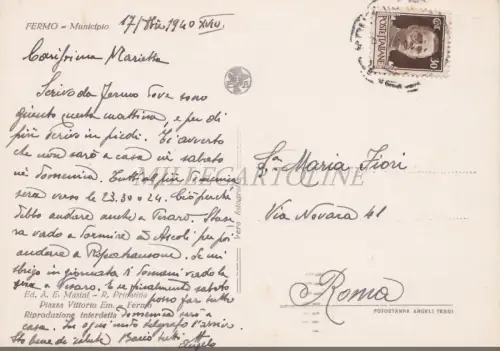 FERMO - Municipio
17/ 1940 XVIII
Carissima Marietta
Scrivo da Fermo dove sono
giunto questa mattina, e per di
più scrivo in piedi. Ti avverto
che non sarò a casa nè sabato
nè domenica. Tutt'al più domenica
sera verso le 23.30 o 24. Ciò perchè
debbo andare anche a Pesaro. Stas
sera vado a dormire ad Ascoli per poi
andare a Ripatransone. Se mi
sbrigo in giornata di domani vado la
sera a Pesaro. E se finalmente sabato
posso far tutto
domenica sarò a
casa. In ogni modo telegrafo l'arrivo.
Sto bene di salute Baci a tutti
Angelo
Ed. A. E. Marini - R. Privativa
Piazza Vittorio Em. - Fermo
Riproduzione interdetta
Vera Fotografia
POSTE ITALIANE
30
Maria Fiori
Via Novara 41
Roma
FOTOSTAMPA ANGELI TERNI
MILLECARTOLINE